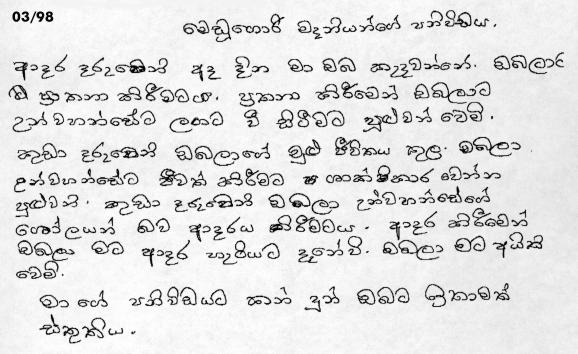 03/98
මෙඩූගොරි මැදනියන්ගේ පනිවිඩය.
ආදර දරුවෙනි අද දින මා ඔබ කැදවන්නේ. ඔබලාට
ප්‍රාතනා කිරීමටය. ප්‍රතනා කිරීමෙන් ඔබලාට
උන්වහන්සේට ලඟට වී සිරීමට පුළුවන් වෙමි.
කුඩා දරුවෙනි ඔබලාගේ මුළු ජීවිතය තුල ඔබලා
උන්වහන්සේට ජීවත් කිරීමට සාක්ෂිකාර වෙන්න
පුළුවනි. කුඩා දරුවෙනි ඔබලා උන්වහන්සේගේ
ගෝලයන් බව ආදරය කිරීමටය. ආදර කිරීමෙන්
ඔබලා මට ආදර හැටියට දැනේවි. ඔබලා මට අයිති
වෙමි.
මා ගේ පනිවිඩයට කන් දුන් ඔබට ඉතාමත්
ස්තුතිය.